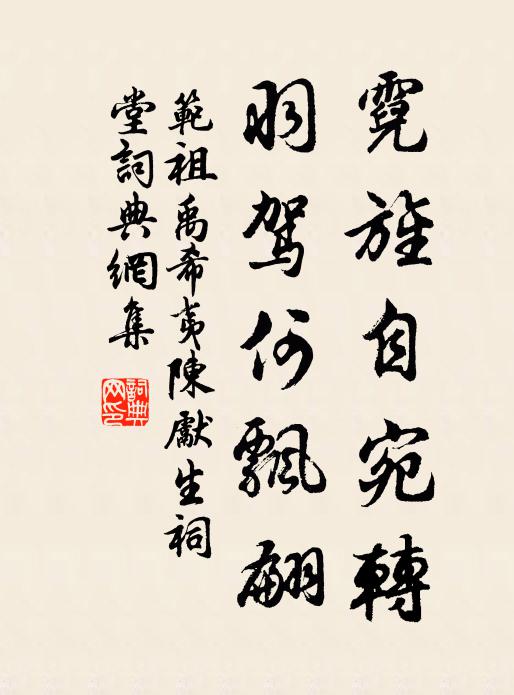 霓旌自宛轉
羽駕何飄翩
範祖禹希夷陳獻生祠
堂詞典網集
詞典
网印